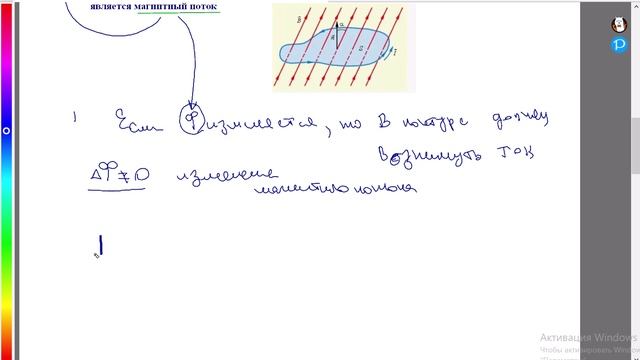 является магнитный поток
1 Если Φ изменяется, то в контуре должен
возникнуть ток
ΔΦ≠0 изменение
магнитного потока
Активация Windows
Чтобы активировать Windows